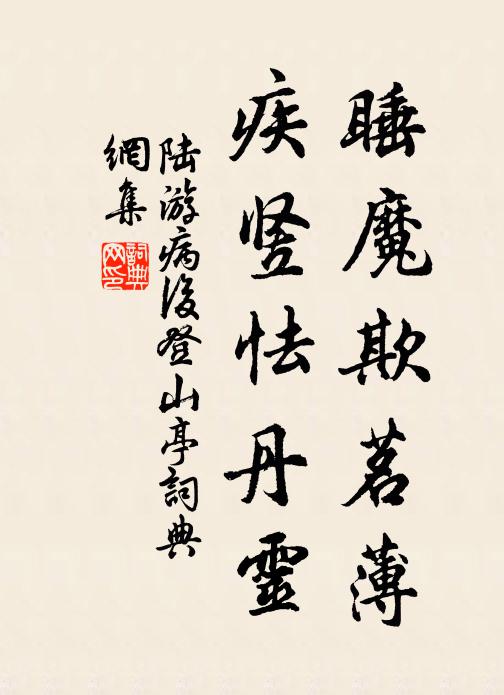 睡魔欺茗薄
疾竖怯丹靈
陆游病後登山亭詞典
網集
詞典网印